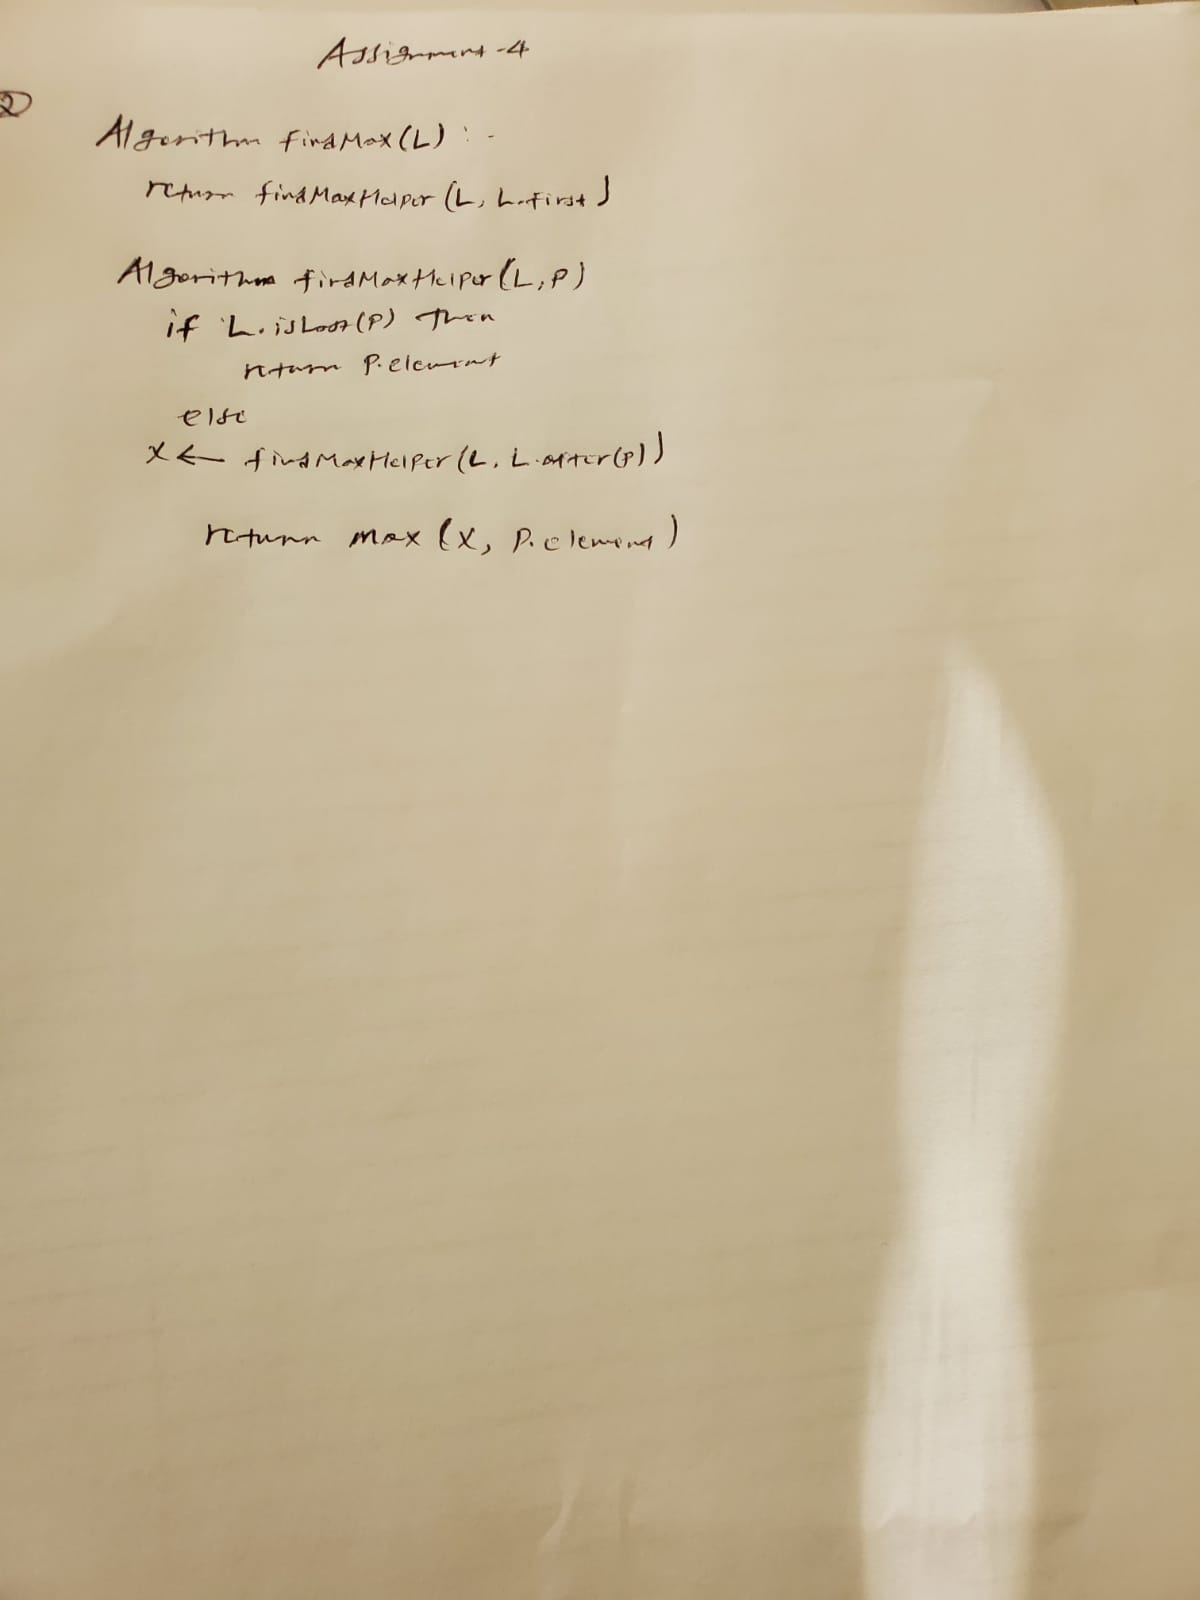 Assignment -4
2
Algorithm findMax(L) : -
return findMaxHelper (L, L.first)
Algorithm findMaxHelper (L, P)
if L.isLast(P) Then
return P.element
else
X ← findMaxHelper (L, L.after(P))
return max (X, P.element)